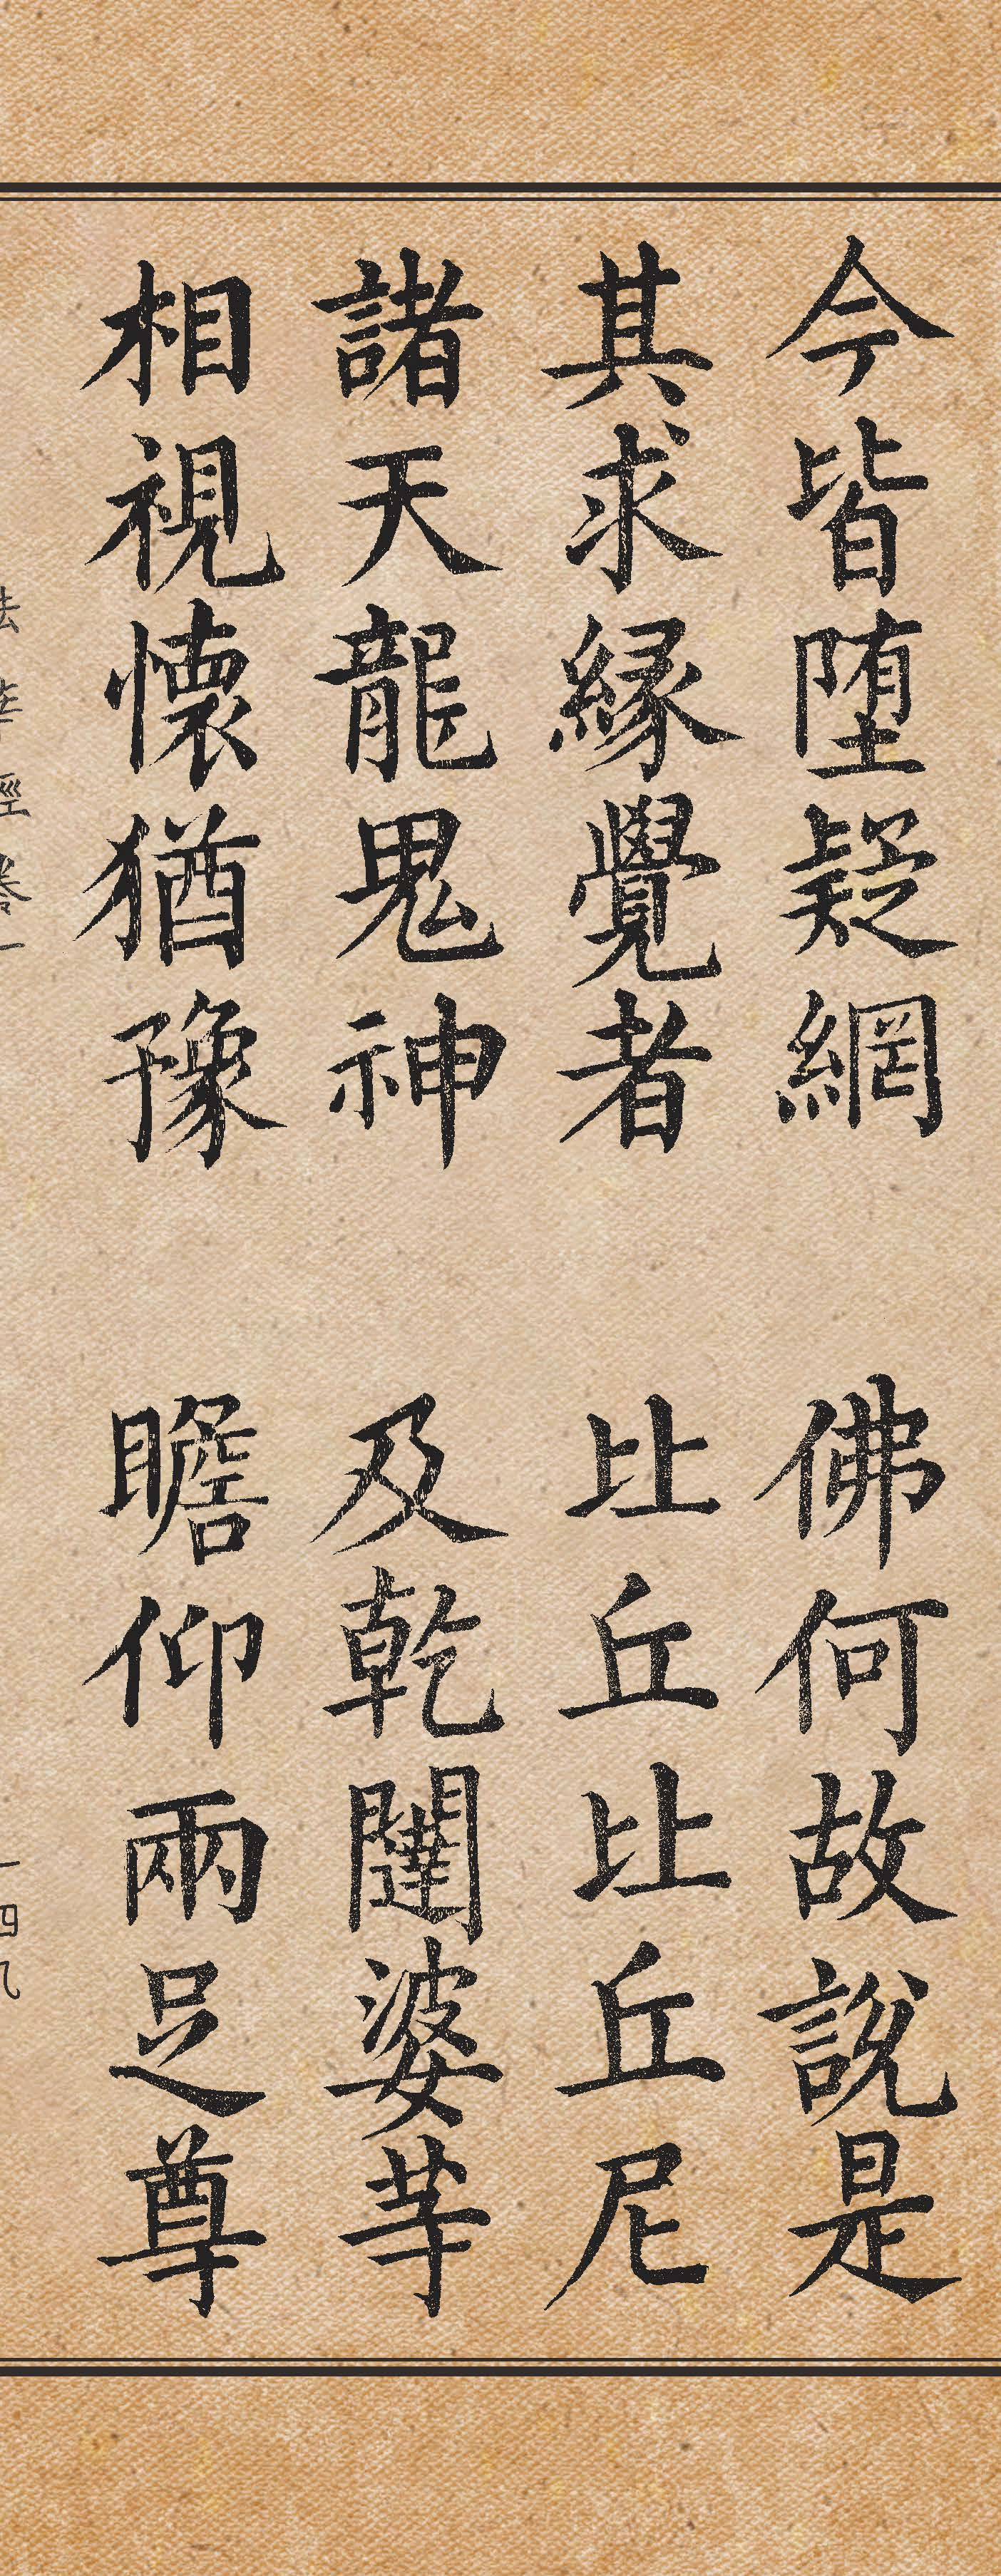 今皆堕疑網　佛何故說是
其求縁覺者　比丘比丘尼
諸天龍鬼神　及乾闥婆等
相視懷猶豫　瞻仰兩足尊
法華經卷一　一四九